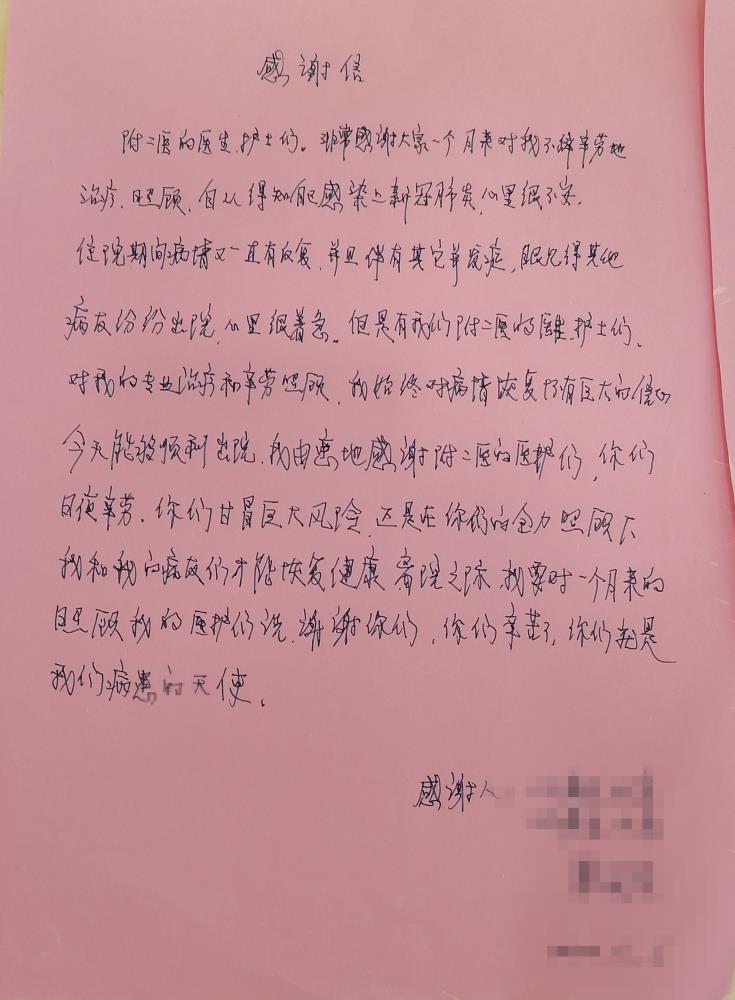 感谢信
附二医的医生、护士们。非常感谢大家一个月来对我不辞辛劳地
治疗、照顾，自从得知自己感染上新冠肺炎，心里很不安，
住院期间病情又一直有反复，并且伴有其它并发症，眼见得其他
病友纷纷出院，心里很着急。但是有我们附二医的医生、护士们，
对我的专业治疗和辛劳照顾，我始终对病情恢复抱有巨大的信心
今天能够顺利出院，我由衷地感谢附二医的医护们，你们
日夜辛劳，你们甘冒巨大风险，还是在你们的全力照顾下
我和我的病友们才能恢复健康 离院之际，我要对一个月来的
照顾我的医护们说，谢谢你们，你们辛苦了，你们就是
我们病患的天使。
感谢人